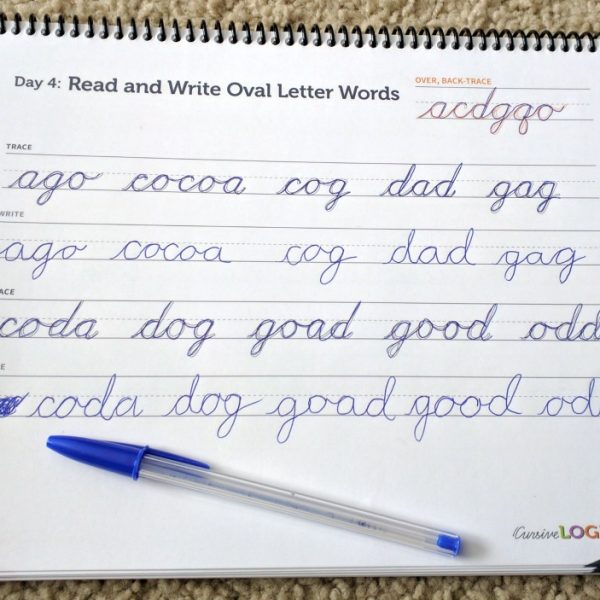 Day 4: Read and Write Oval Letter Words
OVER, BACK-TRACE
acdgqo
TRACE
ago cocoa cog dad gag
WRITE
ago cocoa cog dad gag
ACE
coda dog goad good odd
E
coda dog goad good od
CursiveLOG